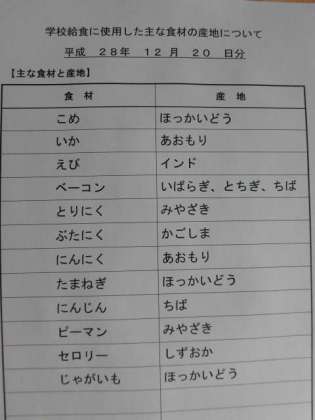 学校給食に使用した主な食材の産地について
平成 28年 12月 20日分
【主な食材と産地】
食材 産地
こめ ほっかいどう
いか あおもり
えび インド
ベーコン いばらぎ、とちぎ、ちば
とりにく みやざき
ぶたにく かごしま
にんにく あおもり
たまねぎ ほっかいどう
にんじん ちば
ピーマン みやざき
セロリー しずおか
じゃがいも ほっかいどう